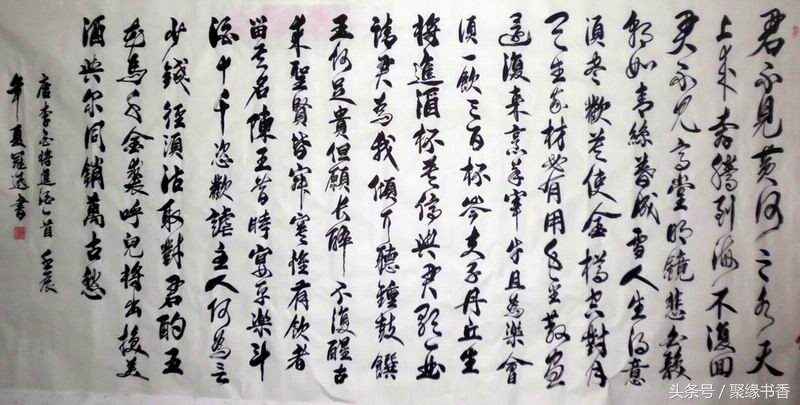 君不見黃河之水天
上來奔騰到海不復回
君不見高堂明鏡悲白髮
朝如青絲暮成雪人生得意
須盡歡莫使金樽空對月
天生我材必有用千金散盡
還復來烹羊宰牛且為樂會
須一飲三百杯岑夫子丹丘生
將進酒杯莫停與君歌一曲
請君為我傾耳聽鐘鼓饌
玉何足貴但願長醉不復醒古
來聖賢皆寂寞惟有飲者
留其名陳王昔時宴平樂斗
酒十千恣歡謔主人何為言
少錢徑須沽取對君酌五
花馬千金裘呼兒將出換美
酒與爾同銷萬古愁
唐李白將進酒一首 壬辰
年夏書
头条号 / 聚缘书香